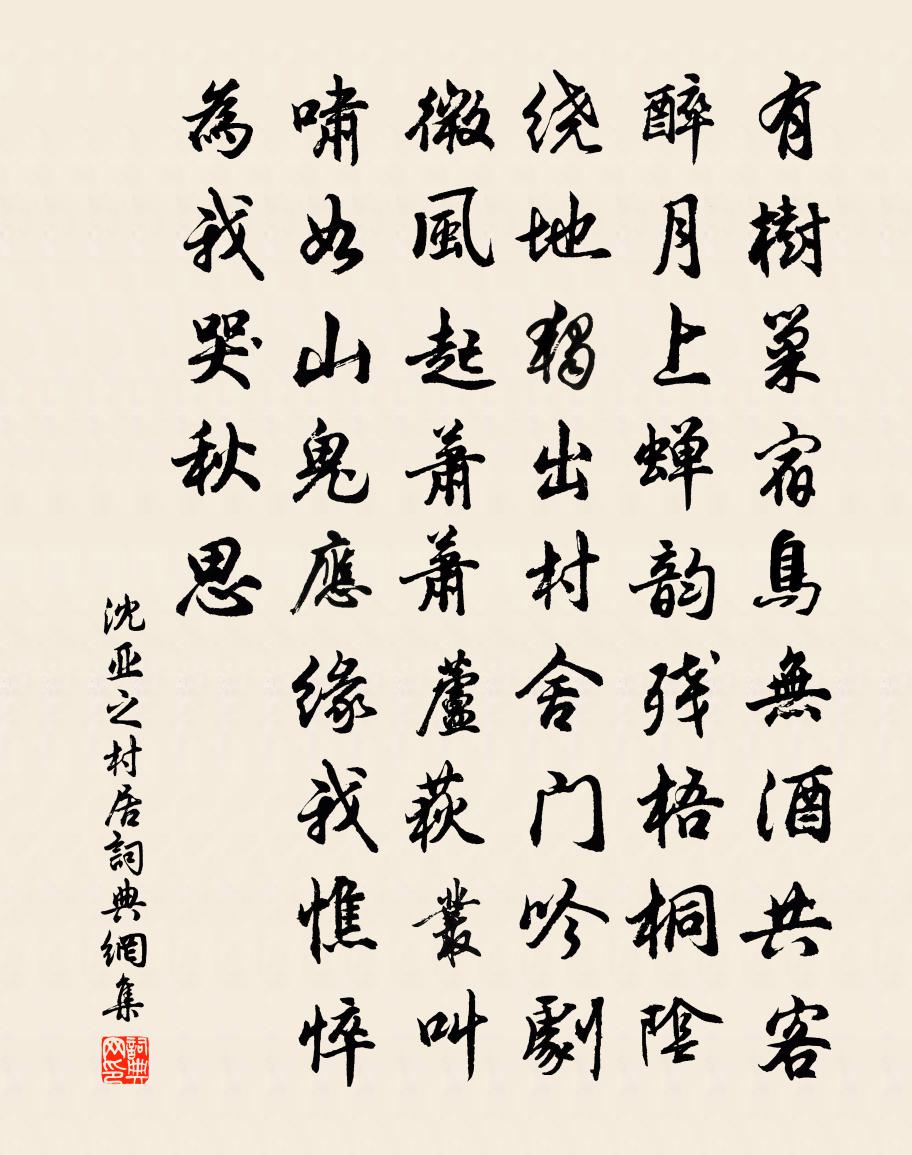 有樹巢宿鳥無酒共客
醉月上蝉韵残梧桐陰
绕地獨出村舍门吟劇
微風起蕭蕭蘆荻叢叫
嘯如山鬼應缘我憔悴
為我哭秋思
沈亚之村居詞典網集
詞典网印